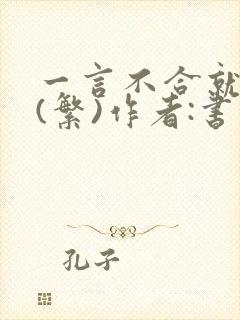 一言不合就
(繁)作者:書
孔子